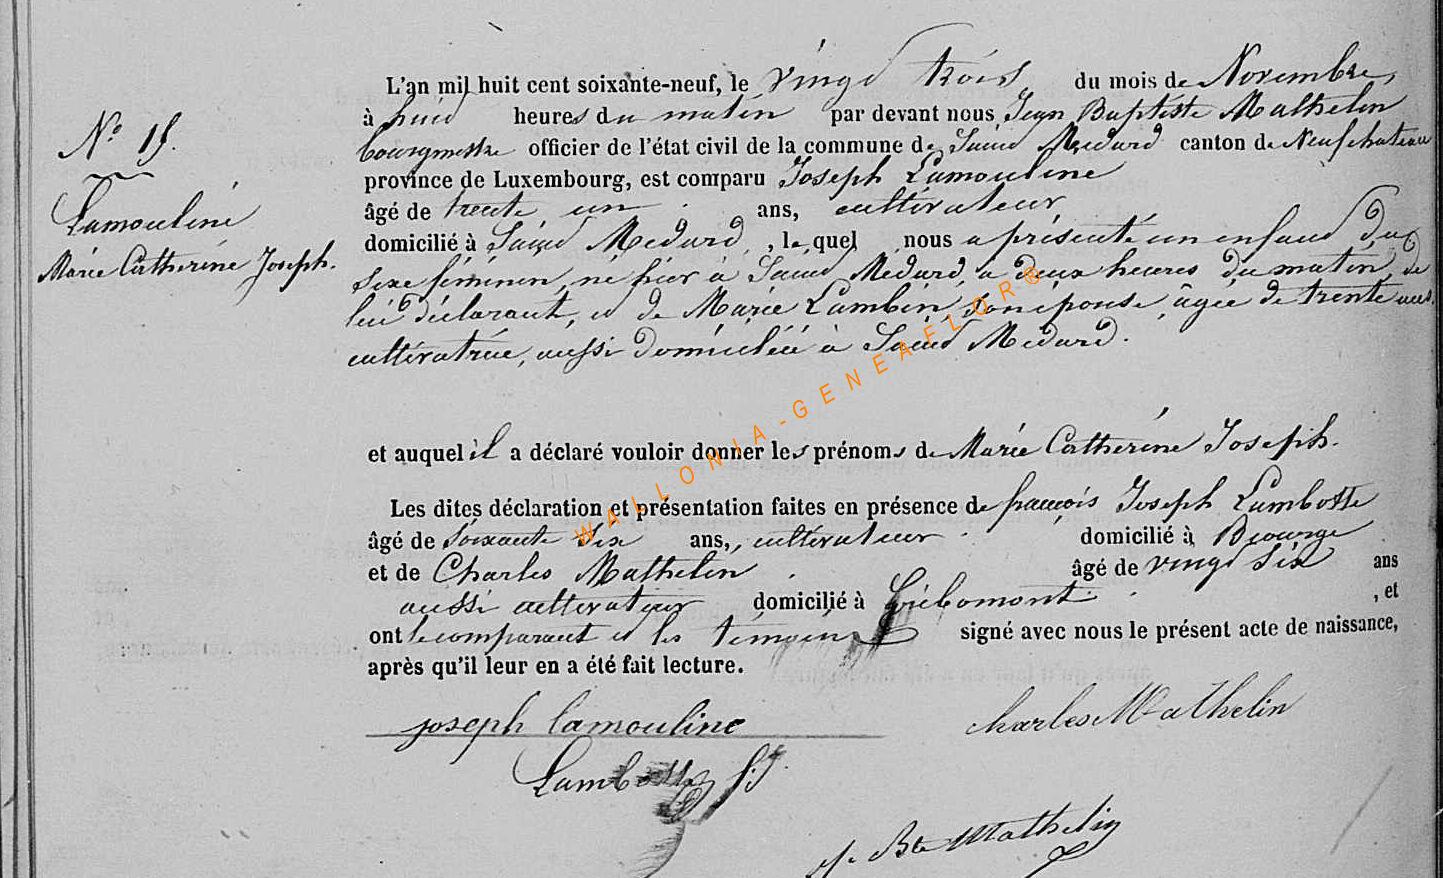 L'an mil huit cent soixante-neuf, le vingt trois du mois de Novembre,
à huit heures du matin par devant nous Jean Baptiste Mathelin
bourgmestre officier de l'état civil de la commune de Saint Médard canton de Neufchateau
province de Luxembourg, est comparu Joseph Lamouline
âgé de trente un ans, cultivateur
domicilié à Saint Medard, lequel nous a présenté un enfant du
sexe féminin, né hier à Saint Médard, à deux heures du matin, de
lui déclarant, et de Marie Lambin son épouse, âgée de trente ans,
cultivatrice, aussi domiciliée à Saint Medard.
N° 15.
Lamouline
Marie Catherine Joseph.
et auquel il a déclaré vouloir donner les prénoms de Marie Catherine Joseph.
Les dites déclaration et présentation faites en présence de françois Joseph Lambotte
âgé de Soixante Six ans, cultivateur domicilié à Biourge
et de Charles Mathelin âgé de vingt Six ans
aussi cultivateur domicilié à Gribomont, et
ont le comparant et les témoins signé avec nous le présent acte de naissance,
après qu'il leur en a été fait lecture.
joseph lamouline
charles Mathelin
Lambotte f.j.
j. Bte Mathelin
WALLONIA-GENEAFLOR®